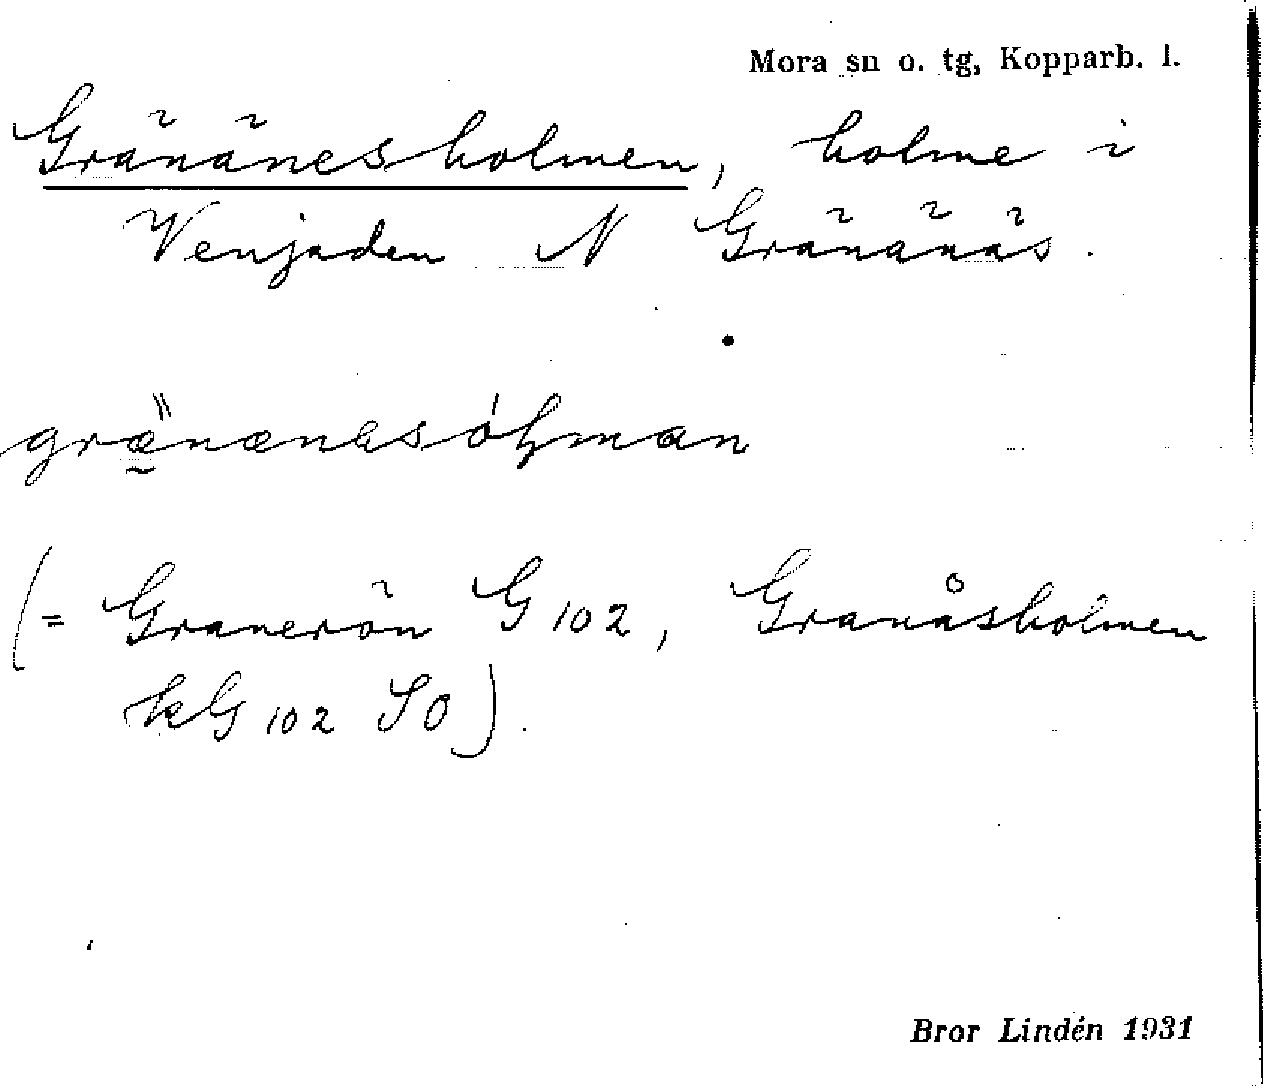 Mora sn o. tg, Kopparb. l.
Gränänesholmen, holme i
Venjaden N Gränänäs.
grænænæsóɫman
(= Granerön G 102, Granåsholmen
kG 102 SO).
Bror Lindén 1931